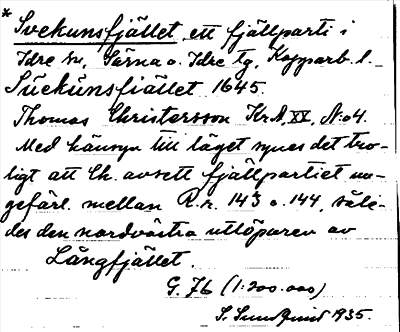 * Svekunsfjället, ett fjällparti i
Idre sn, Särna o. Idre tg, Kopparb. l.
Suekunsfiället 1645.
Thomas Christersson Kr.A, XX, N:o 4.
Med hänsyn till läget synes det tro-
ligt att Ch. avsett fjällpartiet un-
gefärl. mellan R.r. 143 o. 144, såle-
des den nordvästra utlöparen av
Långfjället.
G. 76 (1:200.000)
S. Sundquist 1935.